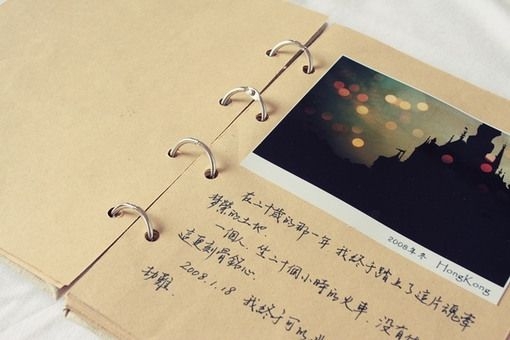 2008年冬 HongKong
在二十歲的那一年 我終于踏上了這片魂牽
夢縈的土地
一個人.坐二十個小時的火車.沒有
這更刻骨銘心.
2008.1.18
我終于可以